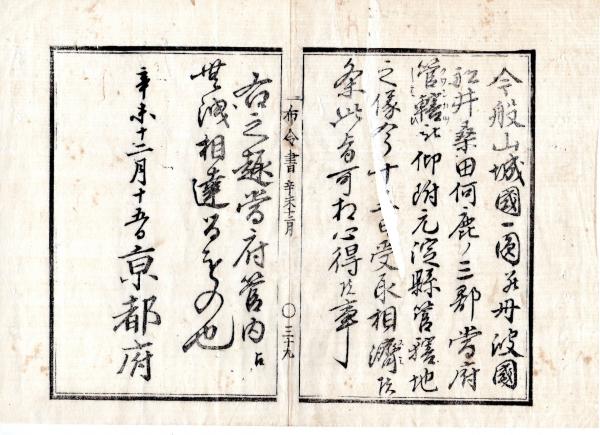 今般山城國一圓并丹波國
船井桑田何鹿ノ三郡當府
管轄被仰附元淀縣管轄地
之儀今十日受取相濟候
条此旨可相心得候事
布令書 辛未十二月 〇三十九
右之趣當府管内江
無洩相達るもの也
辛未十二月十五日京都府